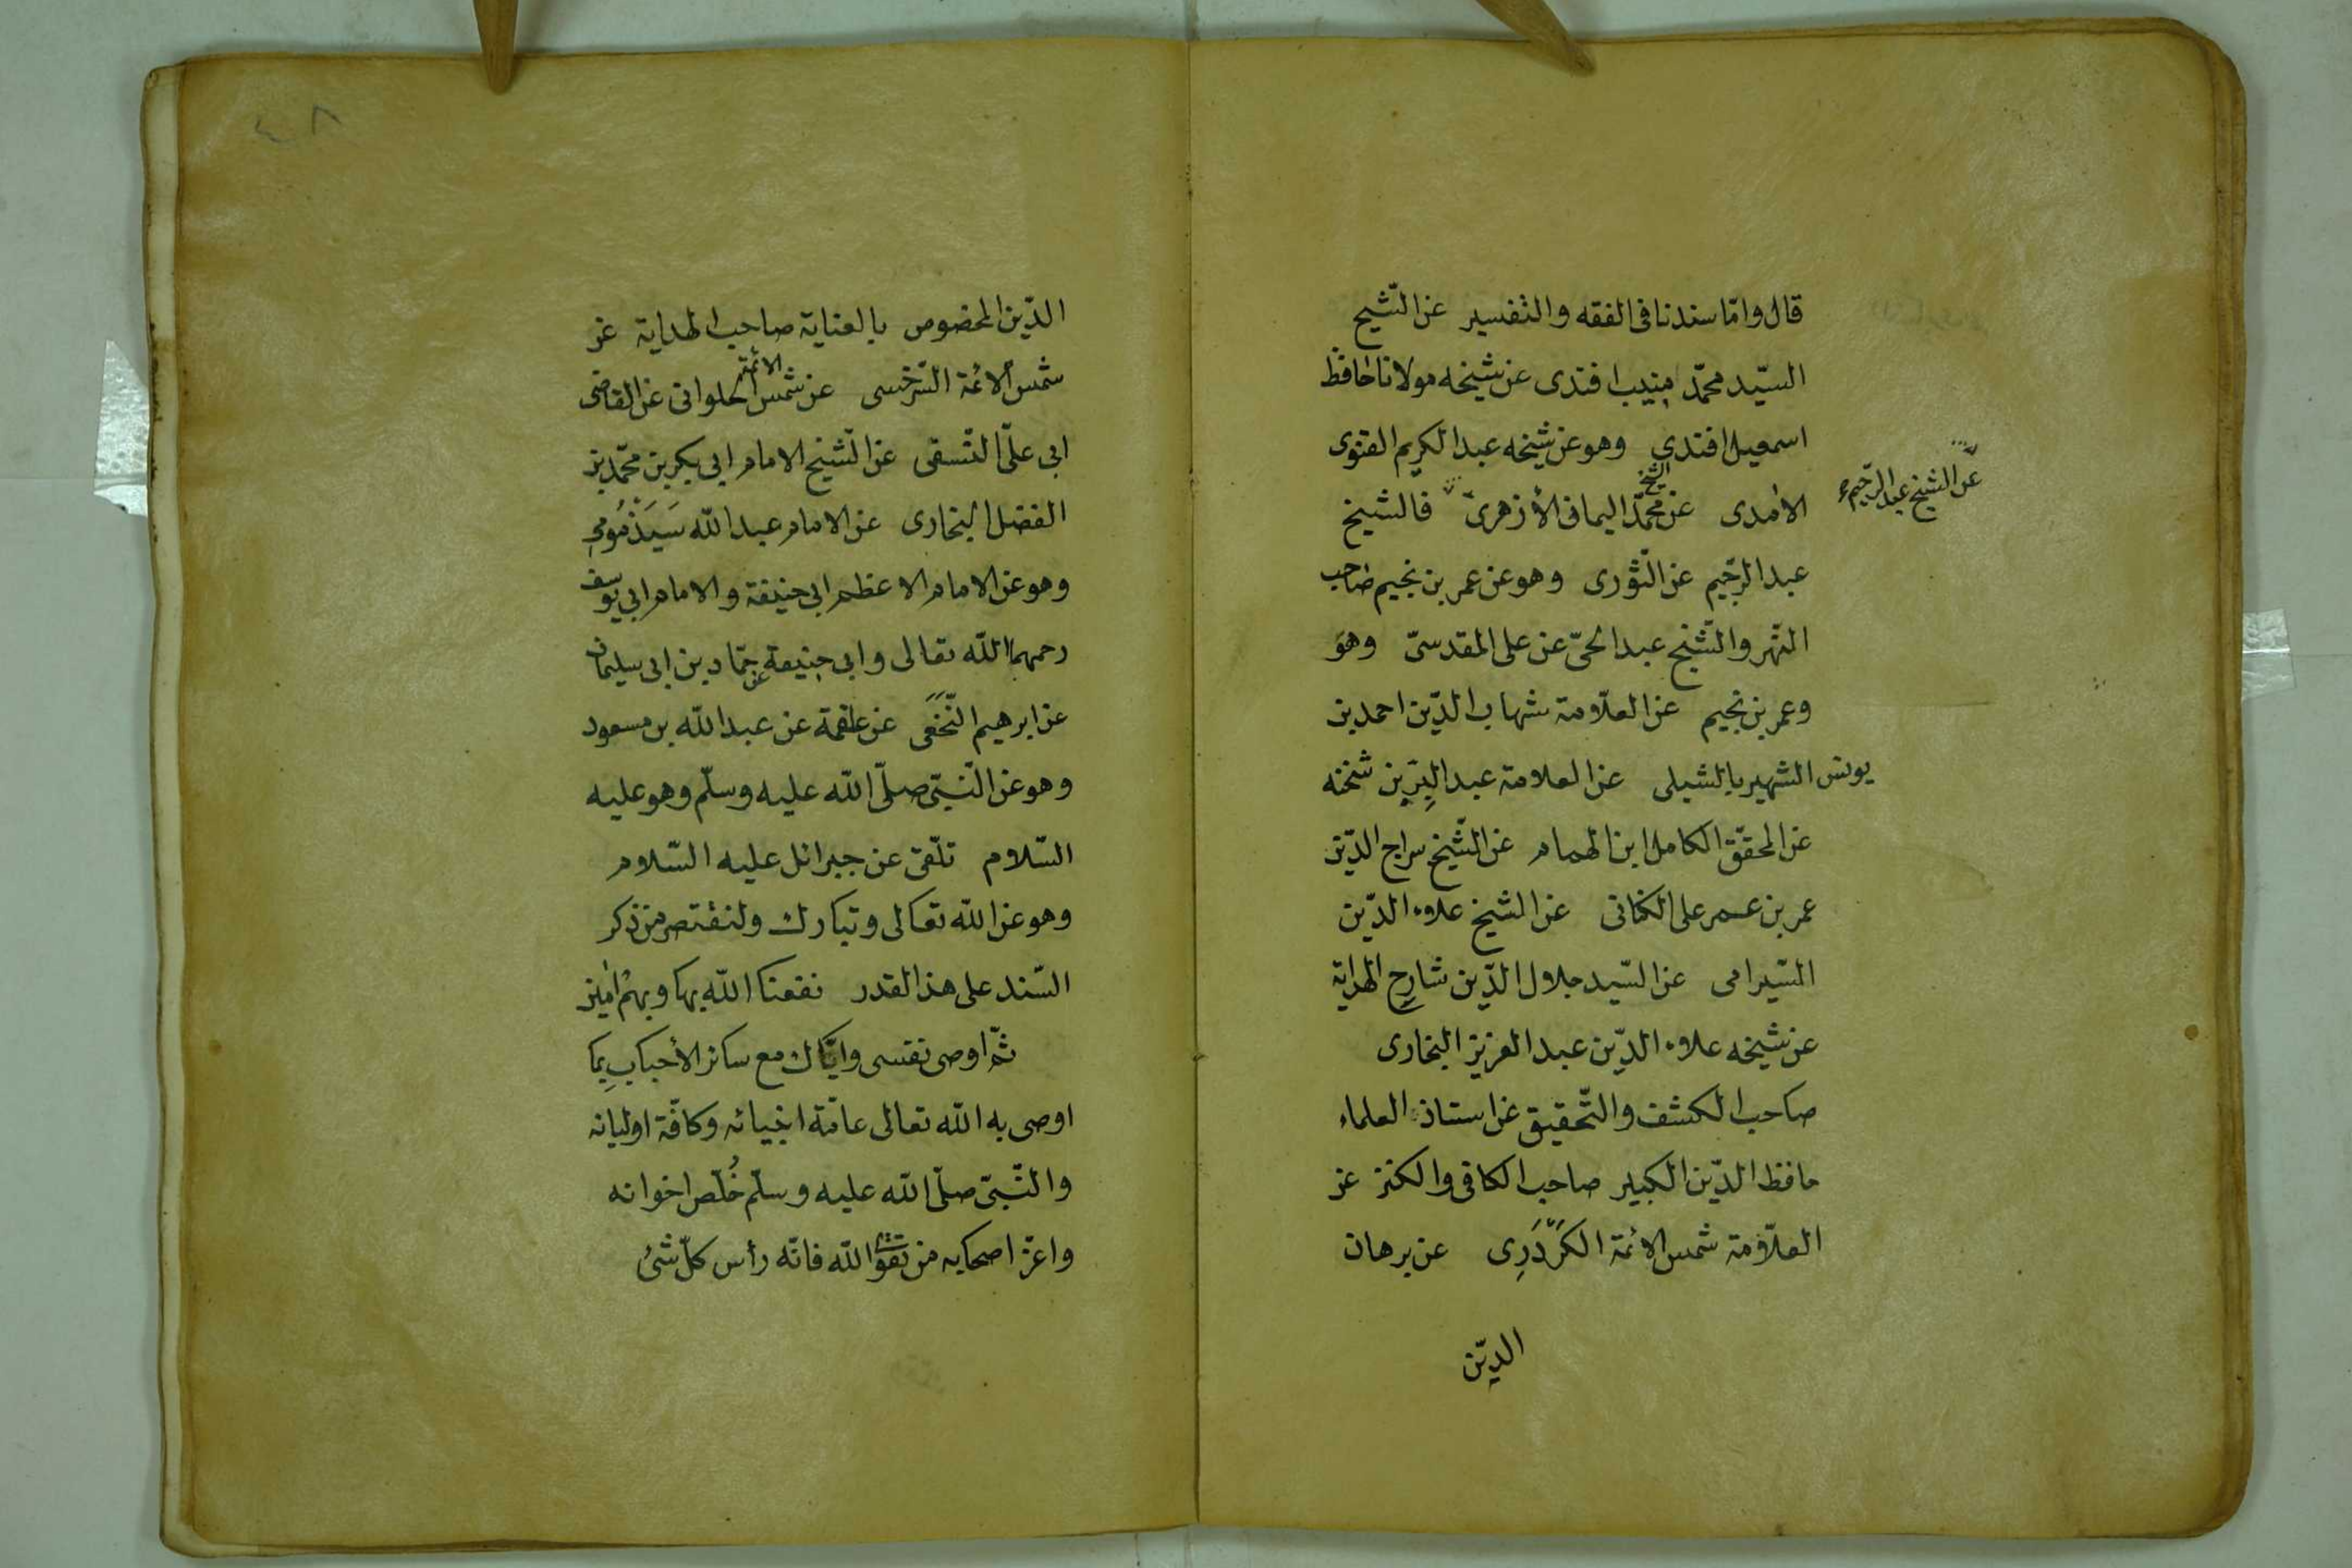 قال وامّا سندنا فى الفقه والتفسير عن الشّيخ
السيّد محمّد منيب افندى عن شيخه مولانا حافظ
اسمعيل افندى وهو عن شيخه عبد الكريم القنوى
الآمدى عن الشيخ محمّد اليمانى الأزهرىّ فالشيخ
عن الشيخ عبد الرّحيم
عبد الرّحيم عن الشّورى وهو عن عمر بن نجيم صاحب
النّهر والشّيخ عبد الحىّ عن على المقدسىّ وهو
وعمر بن نجيم عن العلّامة شهاب الدّين احمد بن
يونس الشهير بالشبلى عن العلامة عبد البِرّ بن شحنه
عن المحقّق الكامل ابن الهمام عن الشّيخ سراج الدّين
عمر بن عمر على الكنانى عن الشيخ علاء الدّين
السّيرامى عن السّيد جلال الدّين شارح الهداية
عن شيخه علاء الدّين عبد العزيز البخارى
صاحب الكشف والتّحقيق عن استاذ العلماء
حافظ الدّين الكبير صاحب الكافى والكنز عن
العلّامة شمس الائمة الكَرْدَرِى عن برهان
الدّين
٤٨
الدّين المخصوص بالعناية صاحب الهداية عن
شمس الائمة السّرخسى عن شمس الائمة الحلوانى عن القاضى
ابى علىّ النّسفى عن الشّيخ الامام ابى بكر بن محمّد بن
الفضل البخارى عن الامام عبد اللّه سَبَذْمُونى
وهو عن الامام الاعظم ابى حنيفة والامام ابى يوسف
رحمهما اللّه تعالى وابى حنيفة عن حمّاد بن ابى سليمان
عن ابرهيم النَّخَعَى عن علقمة عن عبد اللّه بن مسعود
وهو عن النّبىّ صلّى اللّه عليه وسلّم وهو عليه
السّلام تلّقى عن جبرائل عليه السّلام
وهو عن اللّه تعالى وتبارك ولنقتصر من ذكر
السّند على هذا القدر نفعنا اللّه بها وبهم آمين
ثمّ اوصى نفسى وايّاك مع سائر الأحباب بِما
اوصى به اللّه تعالى عامّة انبيائه وكافّة اوليائه
والنّبىّ صلّى اللّه عليه وسلّم خُلّص اخوانه
واعزّ اصحابه من تقوا اللّه فانّه رأس كلّ شئ